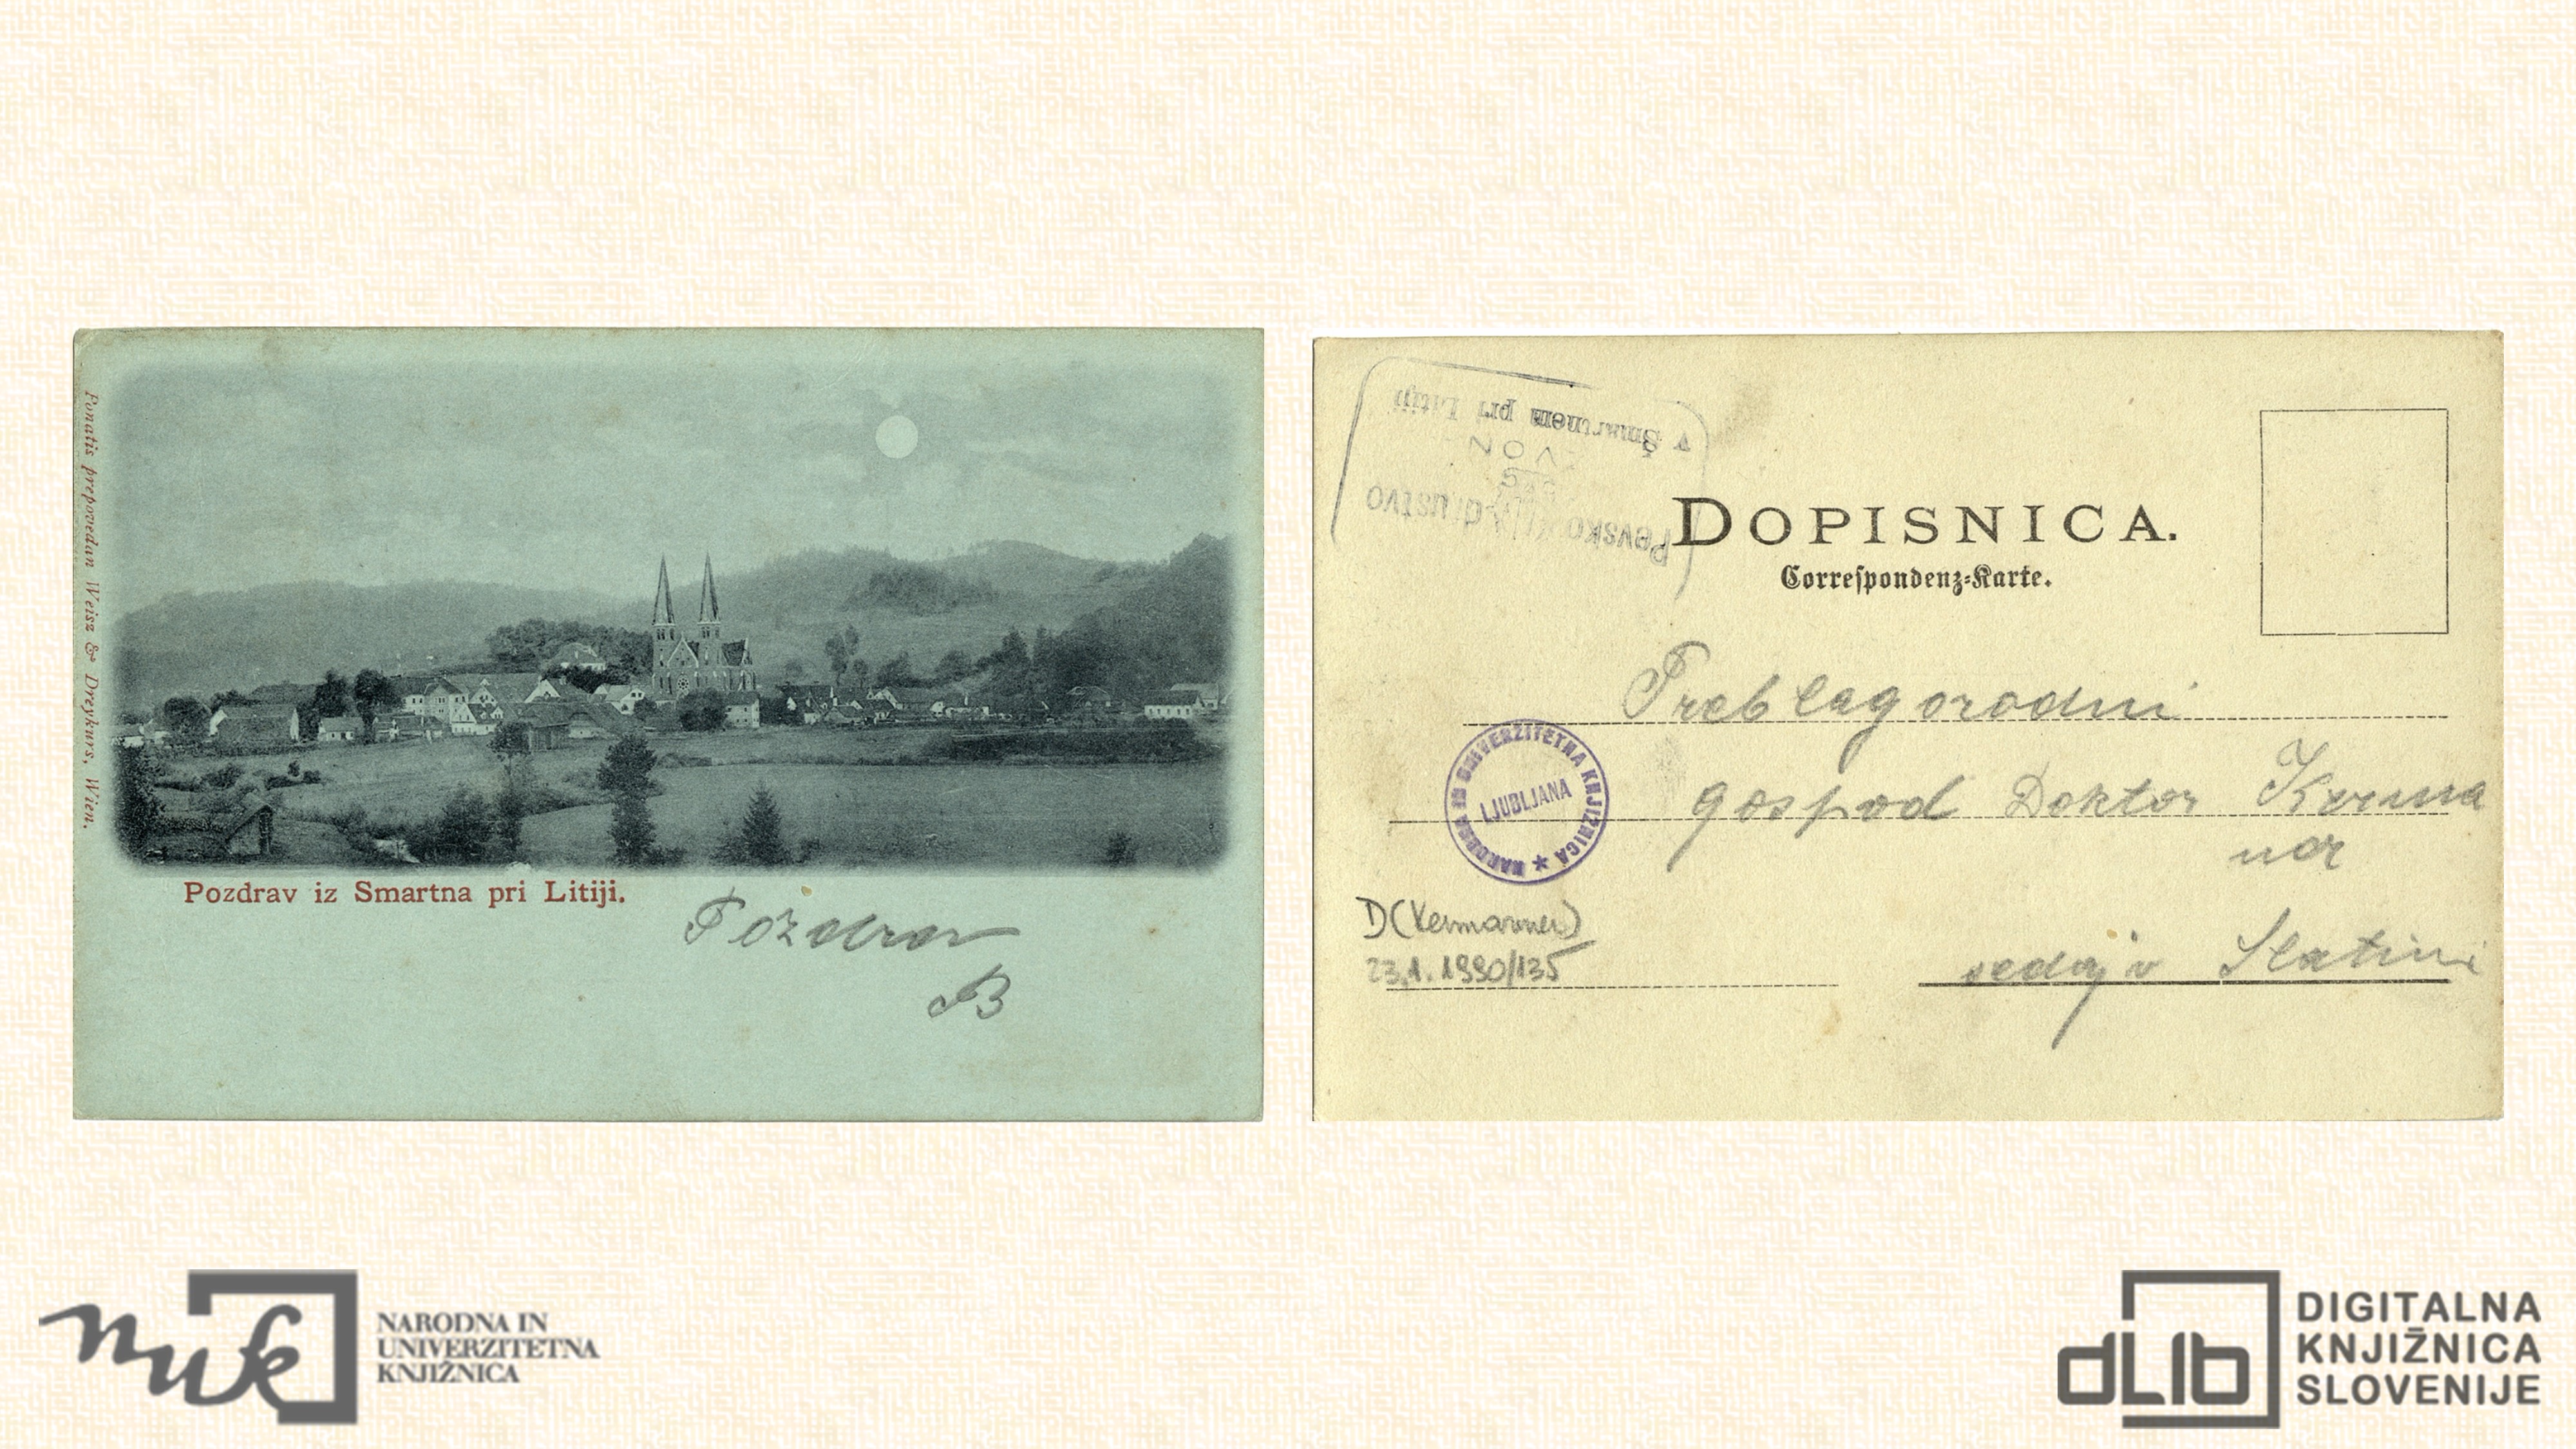 Ponatis prepovedan Weisz & Dreykurs, Wien.
Pozdrav iz Smartna pri Litiji.
Pozdrav
B
v Šmartnem pri Litiji
ZVON
Pevsko društvo
DOPISNICA.
Correspondenz-Karte.
Preblagorodni
gospod Doktor Kerma
ner
sedaj v Slatini
NARODNA IN UNIVERZITETNA KNJIŽNICA
LJUBLJANA
D(Kermavner)
23.1.1990/135
nuk
NARODNA IN
UNIVERZITETNA
KNJIŽNICA
dLib
DIGITALNA
KNJIŽNICA
SLOVENIJE